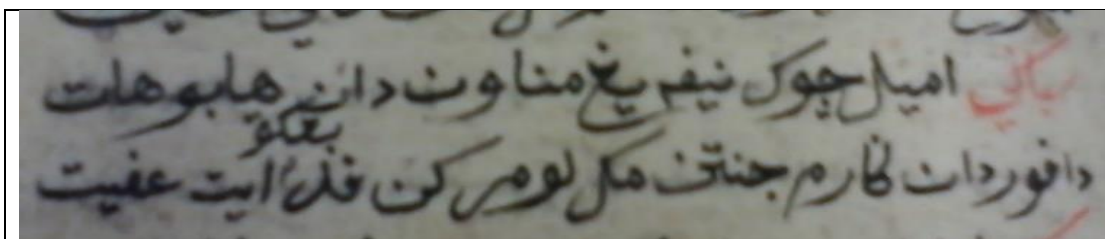 اميل چوك نيفه يڠ مناون دان هابو هات
بڠكق
دافور دان ڬارم جنتن مک لومركن فد ايت عفيت